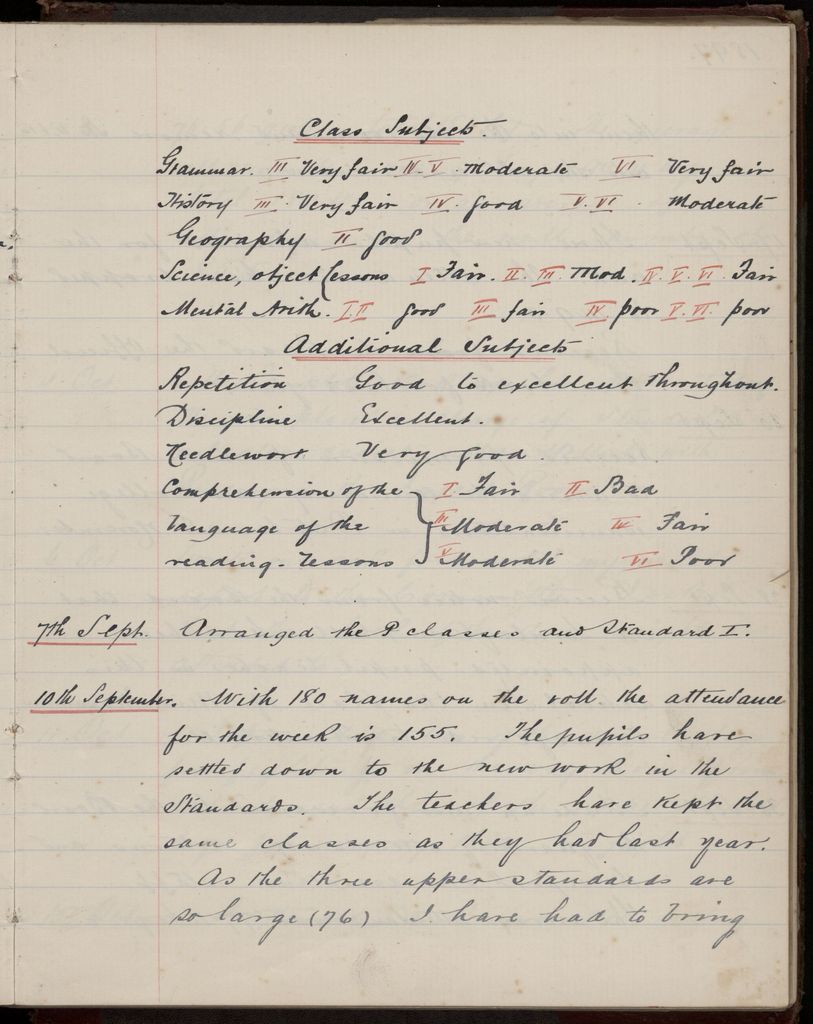 Class Subjects.
Grammar. III Very fair IV. V. Moderate VI Very fair
History III. Very fair IV. good V. VI. Moderate
Geography II good
Science, object lessons I Fair. II. III. Mod. IV. V. VI. Fair
Mental Arith. I. II good III fair IV. poor V. VI. poor
Additional Subjects
Repetition Good to excellent throughout.
Discipline Excellent.
Needlework Very good.
Comprehension of the I Fair II Bad
language of the III Moderate IV Fair
reading-lessons V Moderate VI Poor
7th Sept. Arranged the P classes and Standard I.
10th September. With 180 names on the roll the attendance
for the week is 155. The pupils have
settled down to the new work in the
Standards. The teachers have kept the
same classes as they had last year.
As the three upper standards are
so large (76) I have had to bring